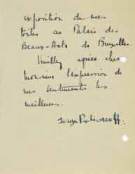 exposition de mes
toiles au Palais des
Beaux-Arts de Bruxelles
Veuillez agréer cher
monsieur l'expression de
mes sentiments les
meilleurs.
Serge Poliakoff.